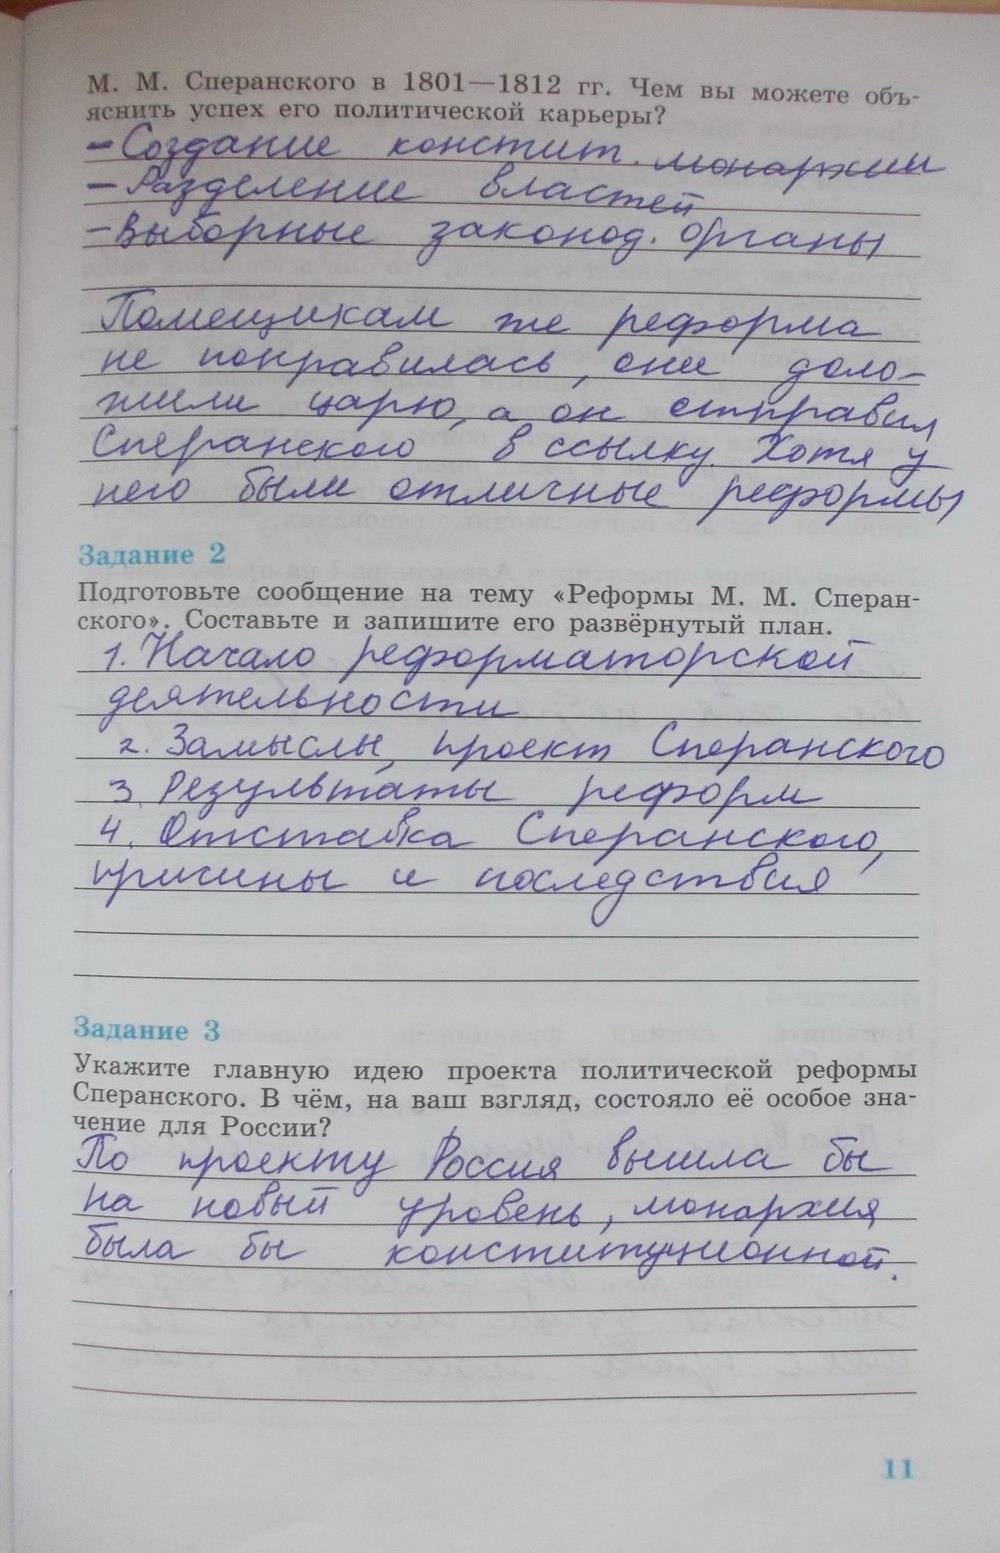 М. М. Сперанского в 1801—1812 гг. Чем вы можете объ-
яснить успех его политической карьеры?
- Создание констит. монархии
- Разделение властей
- Выборные законод. органы
Помещикам же реформа
не понравилась, они доло-
жили царю, а он отправил
Сперанского в ссылку. Хотя у
него были отличные реформы
Задание 2
Подготовьте сообщение на тему «Реформы М. М. Сперан-
ского». Составьте и запишите его развёрнутый план.
1. Начало реформаторской
деятельности
2. Замыслы, проект Сперанского
3. Результаты реформ
4. Отставка Сперанского,
причины и последствия
Задание 3
Укажите главную идею проекта политической реформы
Сперанского. В чём, на ваш взгляд, состояло её особое зна-
чение для России?
По проекту Россия вышла бы
на новый уровень, монархия
была бы конституционной.
11